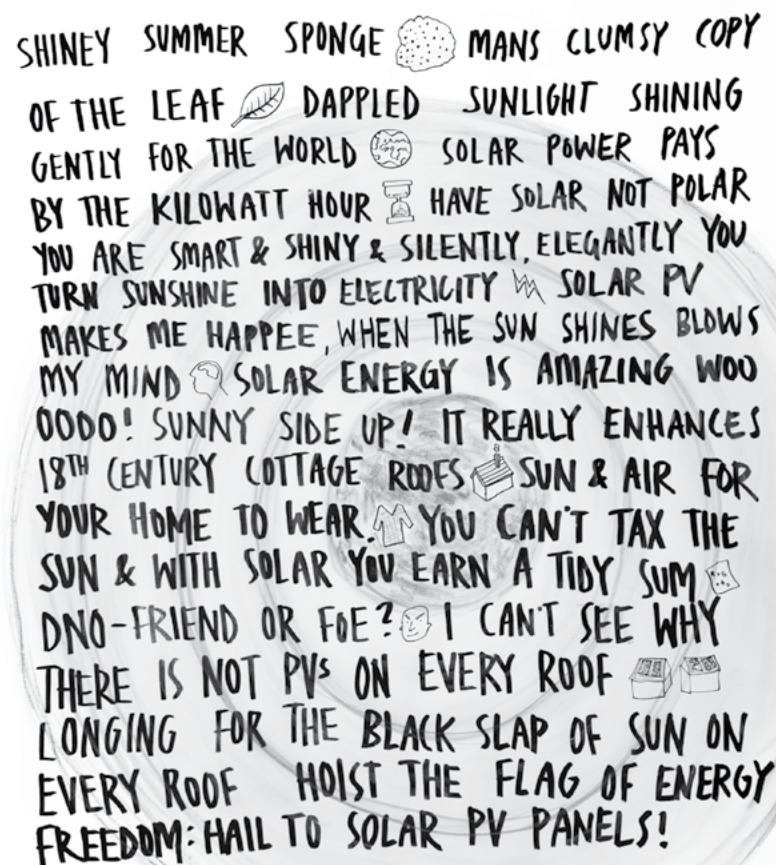 SHINEY SUMMER SPONGE MANS CLUMSY COPY
OF THE LEAF DAPPLED SUNLIGHT SHINING
GENTLY FOR THE WORLD SOLAR POWER PAYS
BY THE KILOWATT HOUR HAVE SOLAR NOT POLAR
YOU ARE SMART & SHINY & SILENTLY, ELEGANTLY YOU
TURN SUNSHINE INTO ELECTRICITY SOLAR PV
MAKES ME HAPPEE, WHEN THE SUN SHINES BLOWS
MY MIND SOLAR ENERGY IS AMAZING WOO
OOOO! SUNNY SIDE UP! IT REALLY ENHANCES
18TH CENTURY COTTAGE ROOFS SUN & AIR FOR
YOUR HOME TO WEAR. YOU CAN'T TAX THE
SUN & WITH SOLAR YOU EARN A TIDY SUM
DNO-FRIEND OR FOE? I CAN'T SEE WHY
THERE IS NOT PVs ON EVERY ROOF
LONGING FOR THE BLACK SLAP OF SUN ON
EVERY ROOF HOIST THE FLAG OF ENERGY
FREEDOM: HAIL TO SOLAR PV PANELS!